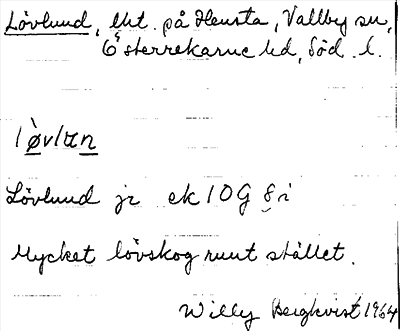 Lövlund, lht. på Hensta, Vallby sn,
Österrekarne hd, Söd. l.
løvlun
Lövlund jr ek 10G 8i
Mycket lövskog runt stället.
Willy Bergkvist 1964